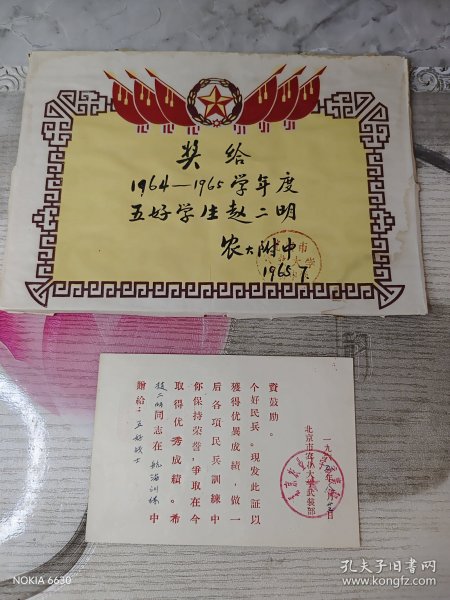 奖给
1964—1965学年度
五好学生赵二明
农大附中
1965.7.
贈給：五好战士
赵二明同志在航海训练中
取得优秀成績。希
你保持荣誉，爭取在今
后各項民兵訓練中
獲得优異成績，做一
个好民兵。现发此証以
資鼓励。
北京市农业大学武装部
一九六五年八月 日
NOKIA 6630
孔夫子旧书网
www.kongfz.com